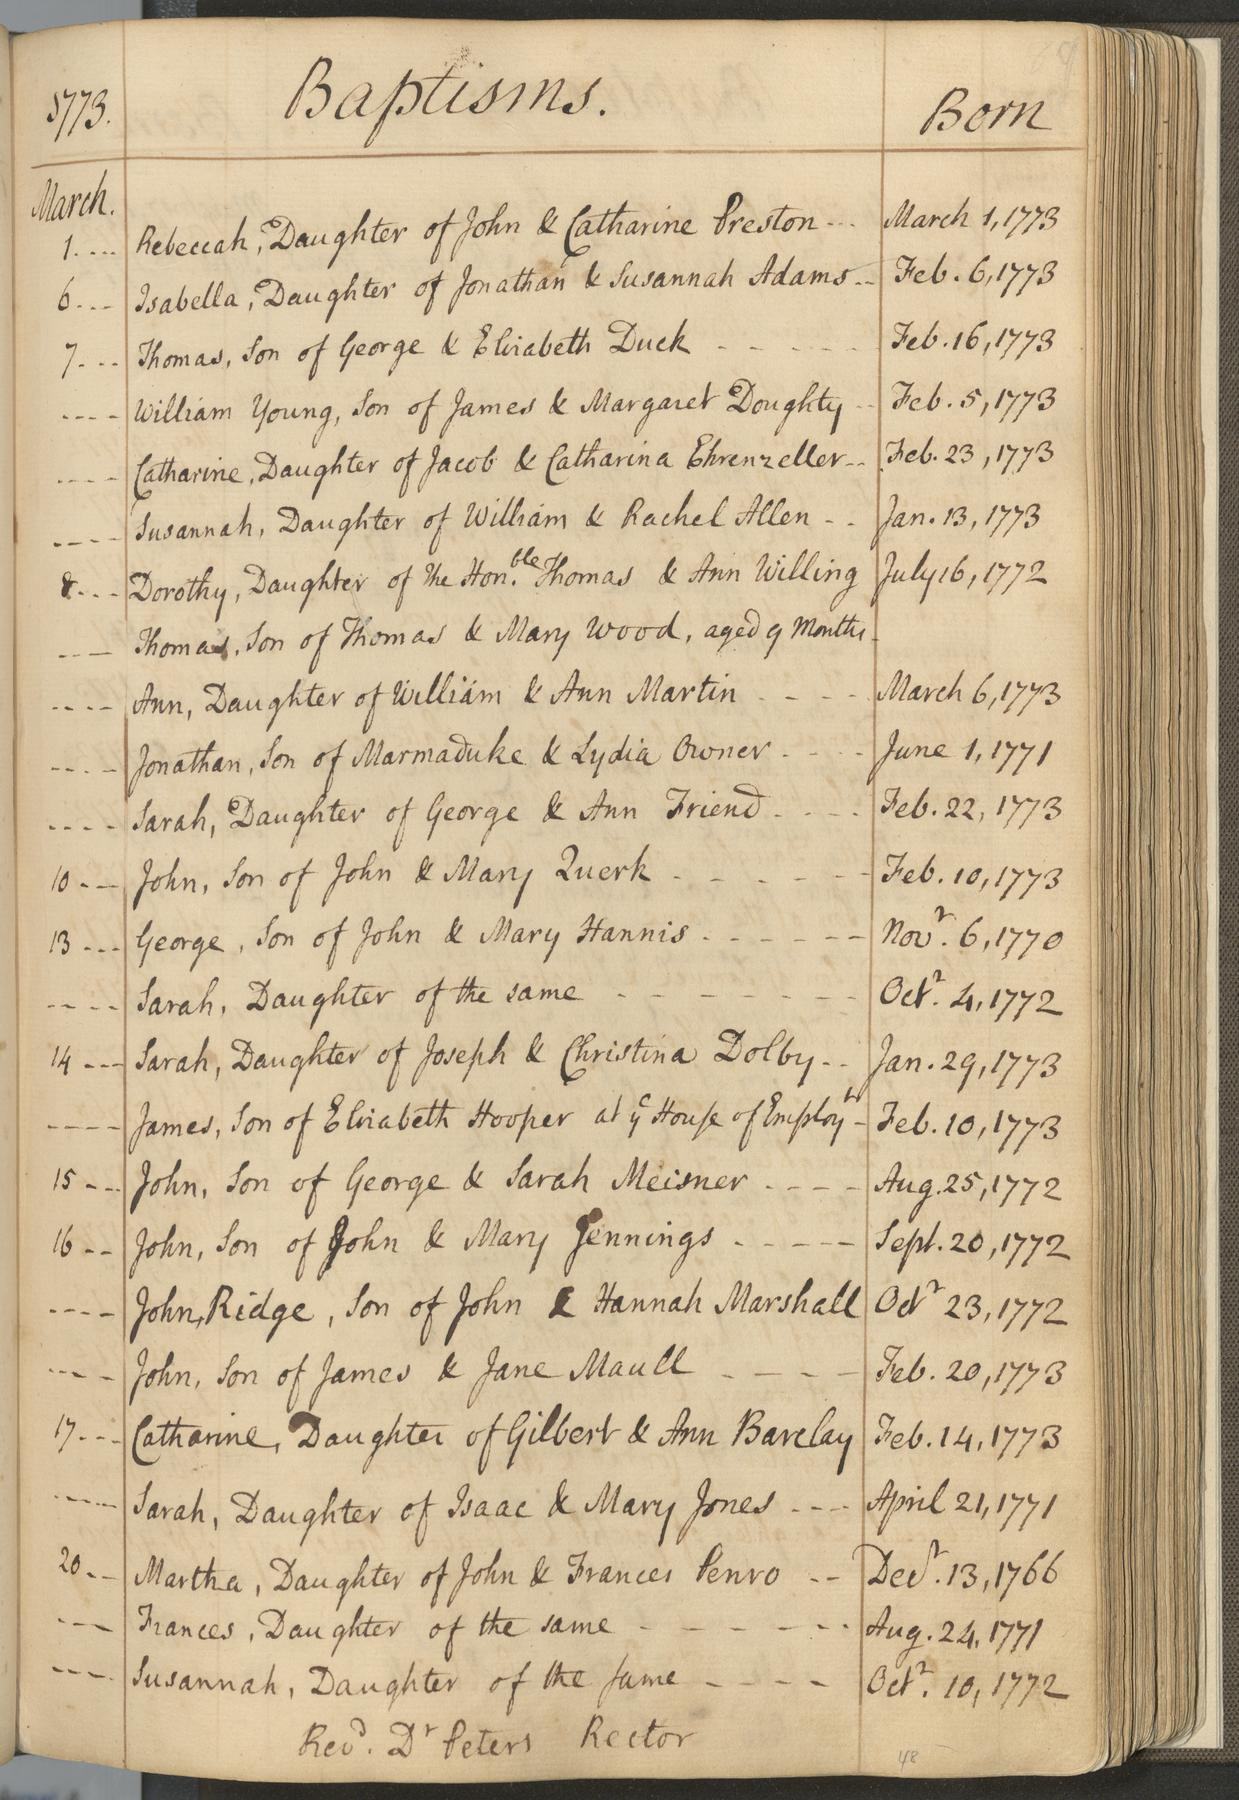 1773. Baptisms. Born
March.
1.... Rebeccah, Daughter of John & Catharine Preston --- March 1, 1773
6--- Isabella, Daughter of Jonathan & Susannah Adams-- Feb. 6, 1773
7--- Thomas, Son of George & Elisabeth Duck - - - - - Feb. 16, 1773
---- William Young, Son of James & Margaret Doughty -- Feb. 5, 1773
---- Catharine, Daughter of Jacob & Catharina Ehrenzeller-- Feb. 23, 1773
---- Susannah, Daughter of William & Rachel Allen - - Jan. 13, 1773
8--- Dorothy, Daughter of the Hon.ble Thomas & Ann Willing July 16, 1772
--- Thomas, Son of Thomas & Mary Wood, aged 9 Months-
---- Ann, Daughter of William & Ann Martin - - - - March 6, 1773
---- Jonathan, Son of Marmaduke & Lydia Owner - - - - June 1, 1771
---- Sarah, Daughter of George & Ann Friend - - - - Feb. 22, 1773
10--- John, Son of John & Mary Querk - - - - - - Feb. 10, 1773
13--- George, Son of John & Mary Hannis - - - - - - Novr. 6, 1770
---- Sarah, Daughter of the same - - - - - - - Octr. 4, 1772
14--- Sarah, Daughter of Joseph & Christina Dolby-- Jan. 29, 1773
---- James, Son of Elisabeth Hooper at ye House of Employt - Feb. 10, 1773
15--- John, Son of George & Sarah Meisner - - - - Aug. 25, 1772
16-- John, Son of John & Mary Jennings - - - - - Sept. 20, 1772
---- John, Ridge, Son of John & Hannah Marshall Octr 23, 1772
---- John, Son of James & Jane Maull - - - - Feb. 20, 1773
17--- Catharine, Daughter of Gilbert & Ann Barclay Feb. 14, 1773
---- Sarah, Daughter of Isaac & Mary Jones --- April 21, 1771
20-- Martha, Daughter of John & Frances Penro -- Decr. 13, 1766
--- Frances, Daughter of the same - - - - - - Aug. 24, 1771
---- Susannah, Daughter of the same - - - - Octr. 10, 1772
Revd. Dr Peters Rector
48